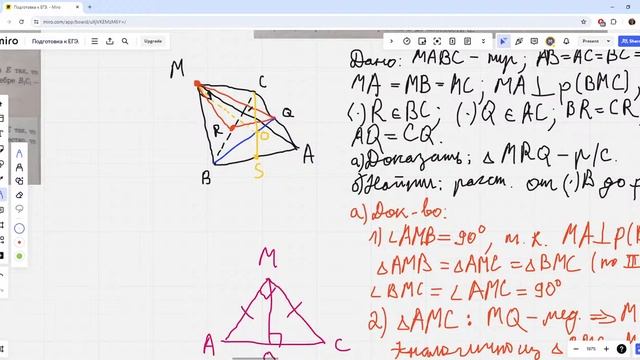 Подготовка к ЕГЭ. - Miro
miro.com/app/board/uXjVKEMzM6Y=/
miro
Подготовка к ЕГЭ.
Upgrade
Present
Share
E так, что
ребре B₁C₁ –
M
C
Q
R
O
A
B
S
Дано: MABC – пир; AB=AC=BC=
MA = MB = MC; MA⊥p(BMC);
(·)R∈BC; (·)Q∈AC; BR=CR;
AQ=CQ.
а) Доказать: △MRQ – р/с.
б) Найти: расст. от (·)B до
а) Док-во:
1) ∠AMB=90°, т.к. MA⊥p(B
△AMB=△AMC=△BMC (по III
∠BMC=∠AMC=90°
2) △AMC: MQ – мед. ⇒ M
Аналогично из △BMC
M
A
C